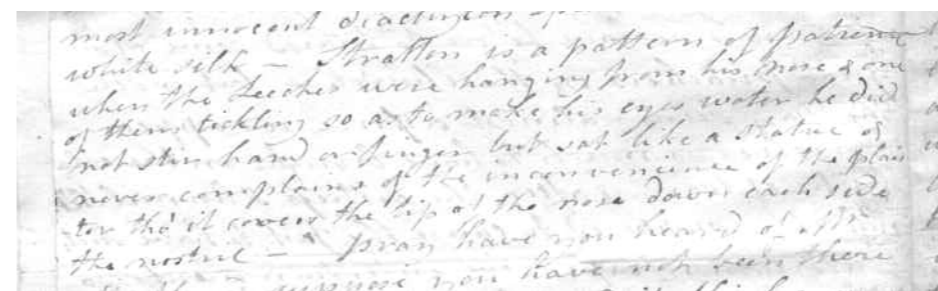 most innocent
white silk – Stratton is a pattern of patience
when the Leeches were hanging from his nose & one
of them tickling so as to make his eyes water he did
not stir hand or finger but sat like a statue &
never complains of the inconvenience of the plais
ter tho' it covers the tip of the nose down each side
the nostril – pray have you heard of Mr
suppose you have not been there